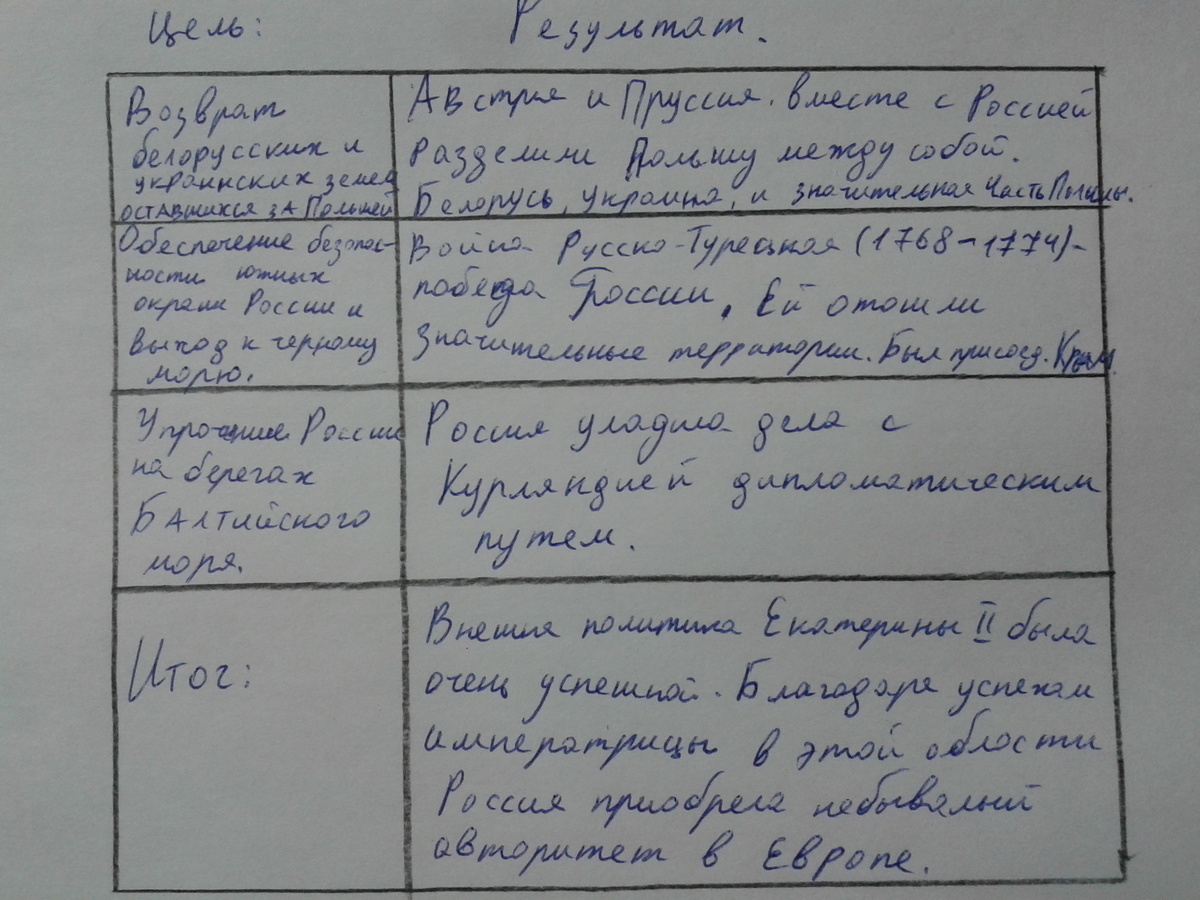 Цель:
Результат.
Возврат
белорусских и
украинских земель
оставшихся за Польшей
Австрия и Пруссия. вместе с Россией
разделили Польшу между собой.
Беларусь, Украина, и значительная часть Польши.
Обеспечение безопас-
ности южных
окраин России и
выход к черному
морю.
Война Русско-Турецкая (1768-1774)-
победа России. Ей отошли
значительные территории. Был присоед. Крым.
России
на берегах
Балтийского
моря.
Россия уладила дела с
Курляндией дипломатическим
путем.
Итог:
Внешняя политика Екатерины II была
очень успешной. Благодаря успехам
императрицы в этой области
Россия приобрела небывалый
авторитет в Европе.